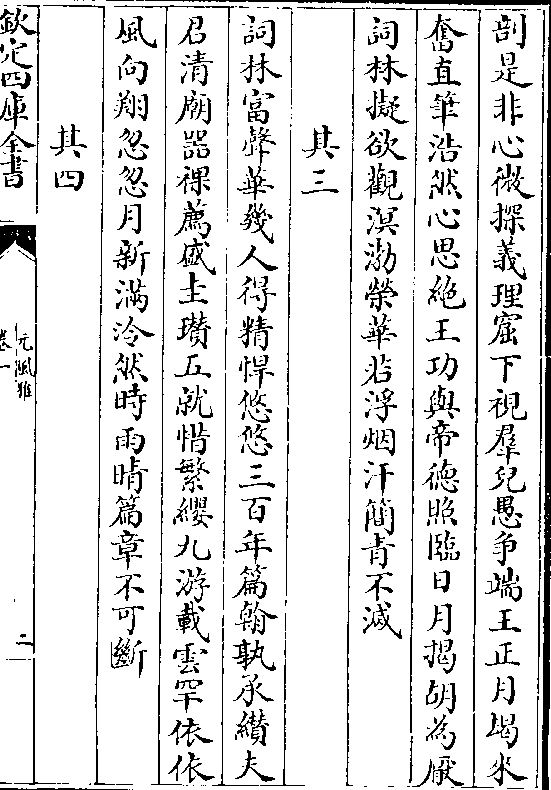 剖是非心微探義理窟下視羣兒愚争端王正月朅來
奮直筆浩然心思絶王功與帝德照臨日月揭胡為厭
詞林擬欲觀溟渤榮華若浮烟汗簡青不滅
其三
詞林富聲華幾人得精悍悠悠三百年篇翰孰承纉夫
君清廟器祼薦盛圭瓚五就惜繁纓九游載雲罕依依
風向翔忽忽月新滿泠然時雨晴篇章不可斷
其四
欽定四庫全書
元風雅
卷一
二